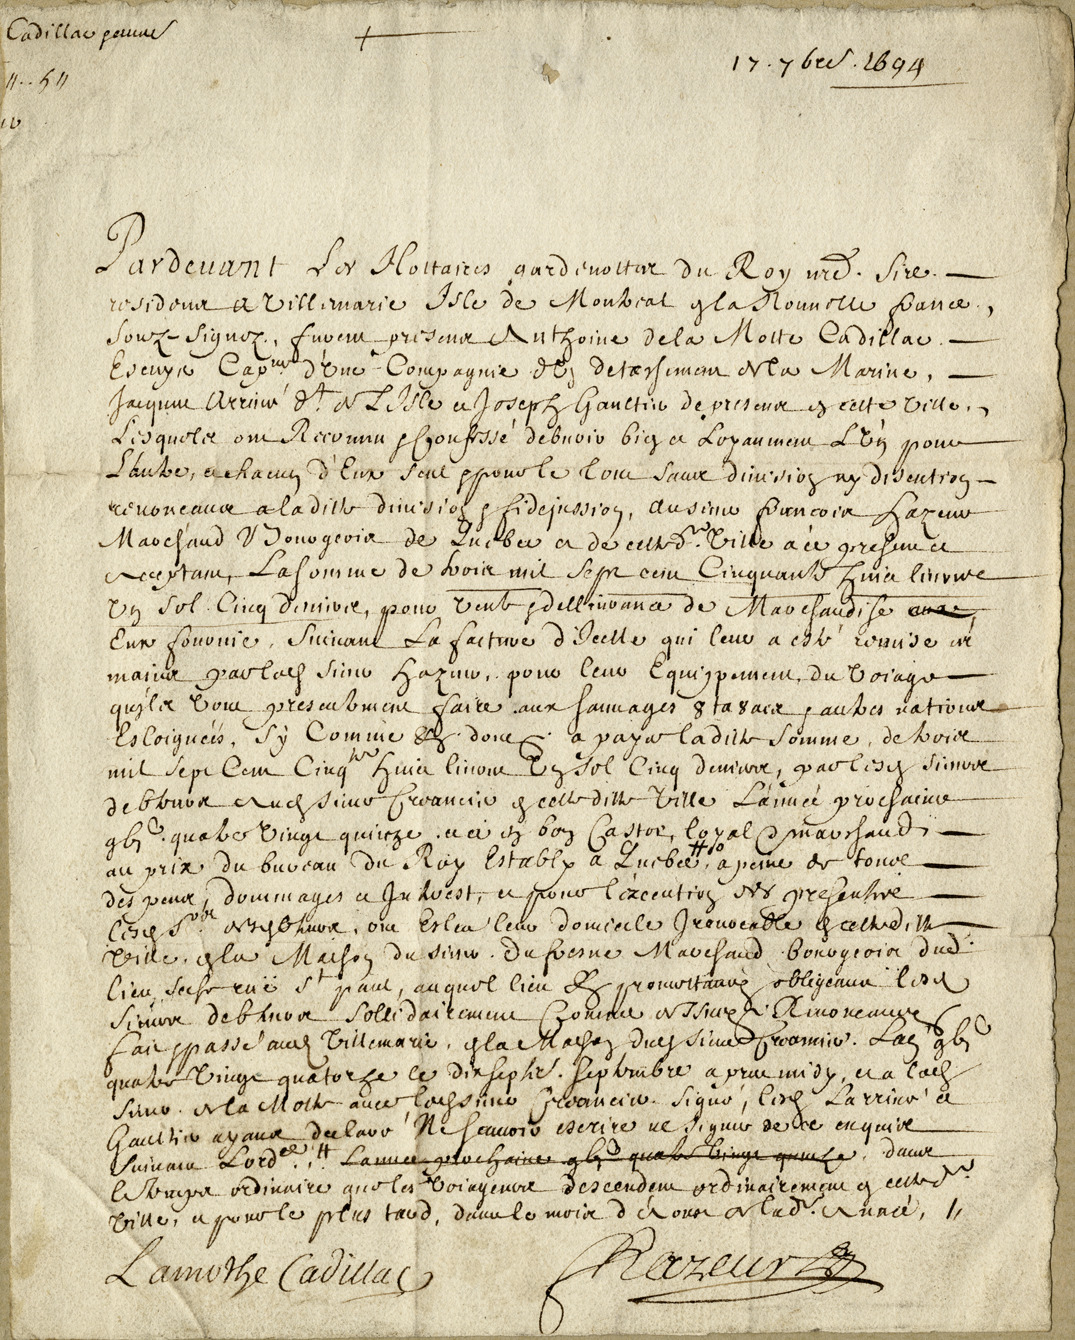 Cadillac
17. 7bre. 1694
Pardevant Les Nottaires gardenottes du Roy nre. Sire.
residens a Villemarie Isle de Montreal en la Nouvelle france,
Souz-Signez, furent presens Anthoine de la Motte Cadillac
Escuyer Capne d'une Compagnie du detachement de la Marine,
Jacques dt de L'Isle et Joseph Gaultier de present en cette Ville,
Lesquels ont Reconnu & Confessé debvoir bien et Loyaument L'un pour
L'autre, et chacun d'Eux seul & pour le tout sans division ny discution
renonceans a ladite division & fidejussion, au sieur francois hazeur
Marchand Bourgeois de Quebec et de cette de. Ville a ce present et
acceptant, La somme de trois mil sept cent Cinquante huict livres
Un sol Cinq deniers, pour vente & dellivrance de Marchandise
Eux fournie, Suivant La facture d'Icelle qui leur a esté remise es
mains par led. sieur hazeur, pour leur Equippement du voiage
qu'ils vont presentement faire aux sauvages 8ta8acs & autres nations
Esloignées, Sy Comme &c. dont &c. a payer ladite somme de trois
mil sept Cent Cinqte huict livres Un sol Cinq deniers, par lesd. sieurs
debteurs aud. sieur Creancier en cette dite Ville L'année prochaine
quatre vingt quinze en bon Castor, loyal & marchand
au prix du bureau du Roy Estably a Quebec, a peine de tous
despens, dommages et Interest, et pour l'execution des presentes
lesd. Srs. debteurs, ont Esleu leur domicile Irrevocable en cette dite
Ville, en la Maison du sieur Dufresne Marchand bourgeois dud.
lieu, size rue St paul, auquel lieu &c. promettans obligeans lesd.
Sieurs debteurs sollidairement Comme dessus & Renonceans &c.
fait & passé aud. Villemarie, en la Maison dud. sieur Creancier. L'an
quatre vingt quatorze le dixseptie. septembre apres midy, et a led.
sieur de la Motte avec led. sieur Creancier signé, lesd. Larrivé et
Gaultier ayans declaré Ne scavoir escrire ne signer de ce enquis
suivant Lordce. L'année prochaine quatre vingt quinze, dans
le temps ordinaire que les voiageurs descendent ordinairement en cette de.
Ville, et pour le plus tard, dans le mois d'Aoust de lade. Année,
Lamothe Cadillac hazeur